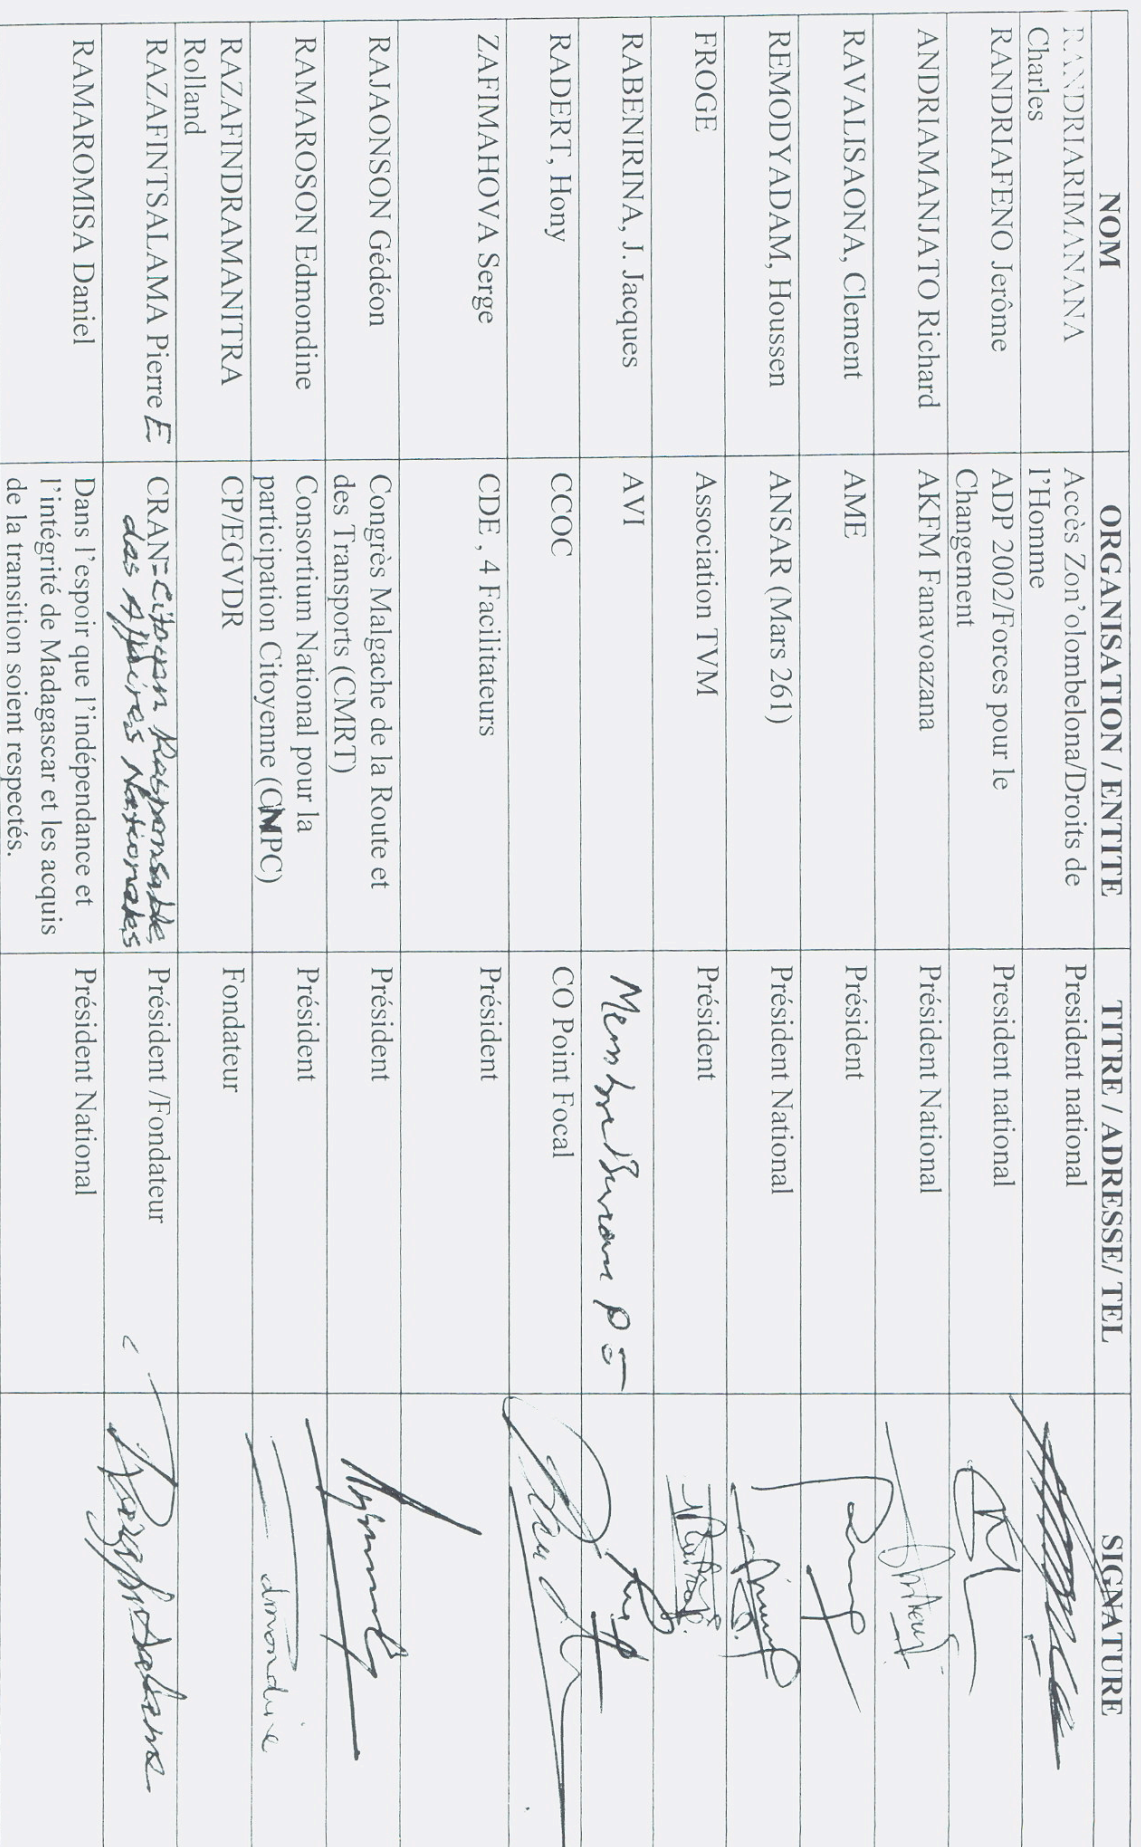 NOM ORGANISATION / ENTITE TITRE / ADRESSE/ TEL SIGNATURE
RANDRIARIMANANA Accès Zon'olombelona/Droits de President national
Charles l'Homme
RANDRIAFENO Jerôme ADP 2002/Forces pour le President national
Changement
ANDRIAMANJATO Richard AKFM Fanavoazana Président National
RAVALISAONA, Clement AME Président
REMODYADAM, Houssen ANSAR (Mars 261) Président National
FROGE Association TVM Président
RABENIRINA, J. Jacques AVI Membre Bureau
RADERT, Hony CCOC CO Point Focal
ZAFIMAHOVA Serge CDE , 4 Facilitateurs Président
RAJAONSON Gédéon Congrès Malgache de la Route et Président
des Transports (CMRT)
RAMAROSON Edmondine Consortium National pour la Président
participation Citoyenne (CNPC)
RAZAFINDRAMANITRA CP/EGVDR Fondateur
Rolland
RAZAFINTSALAMA Pierre E CRAN=Citoyen Responsable Président /Fondateur
des Affaires Nationales
RAMAROMISA Daniel Dans l'espoir que l'indépendance et Président National
l'intégrité de Madagascar et les acquis
de la transition soient respectés.